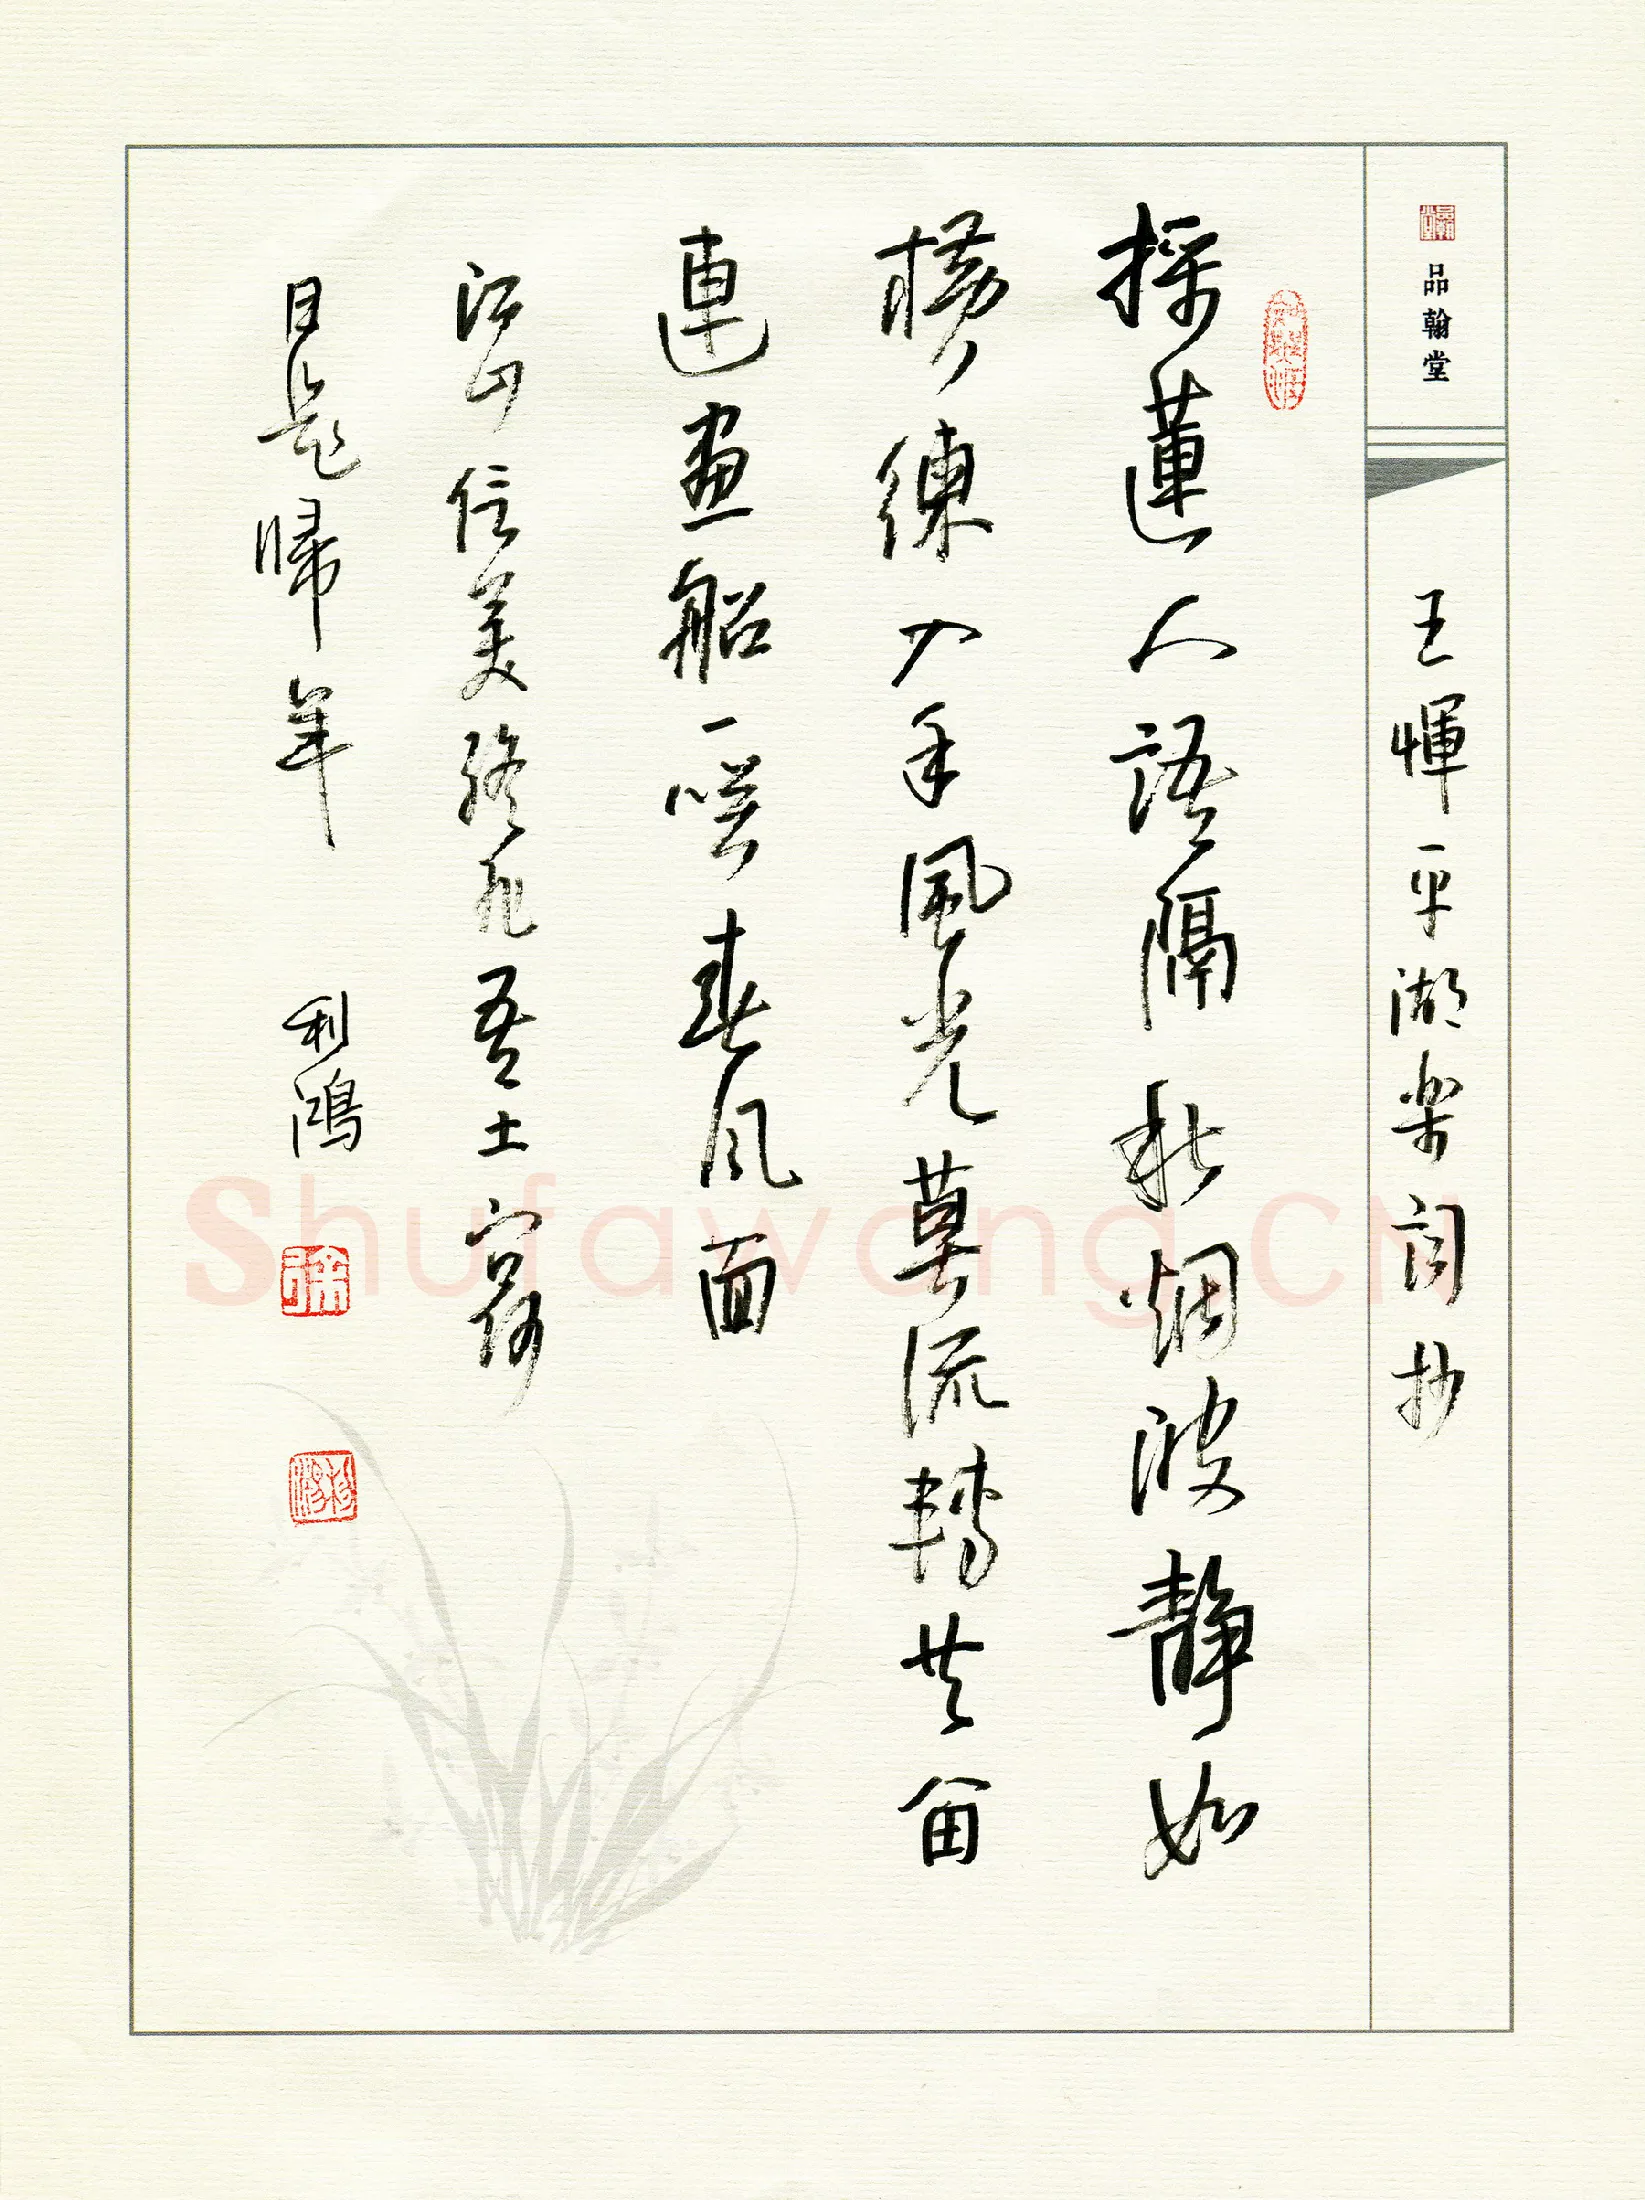 品翰堂
王惲平湖楽詞抄
採蓮人語隔秋烟波靜如
横練入手風光莫流轉共留
連畫船一咲春风面
江山信美終非吾土何
日是帰年 利鴻
徐
Shufawang.CN